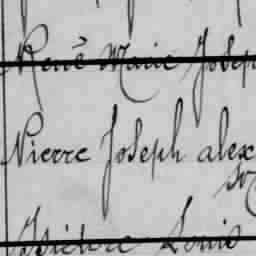 René Marie Josep
Pierre Joseph alex
Isidore Louis